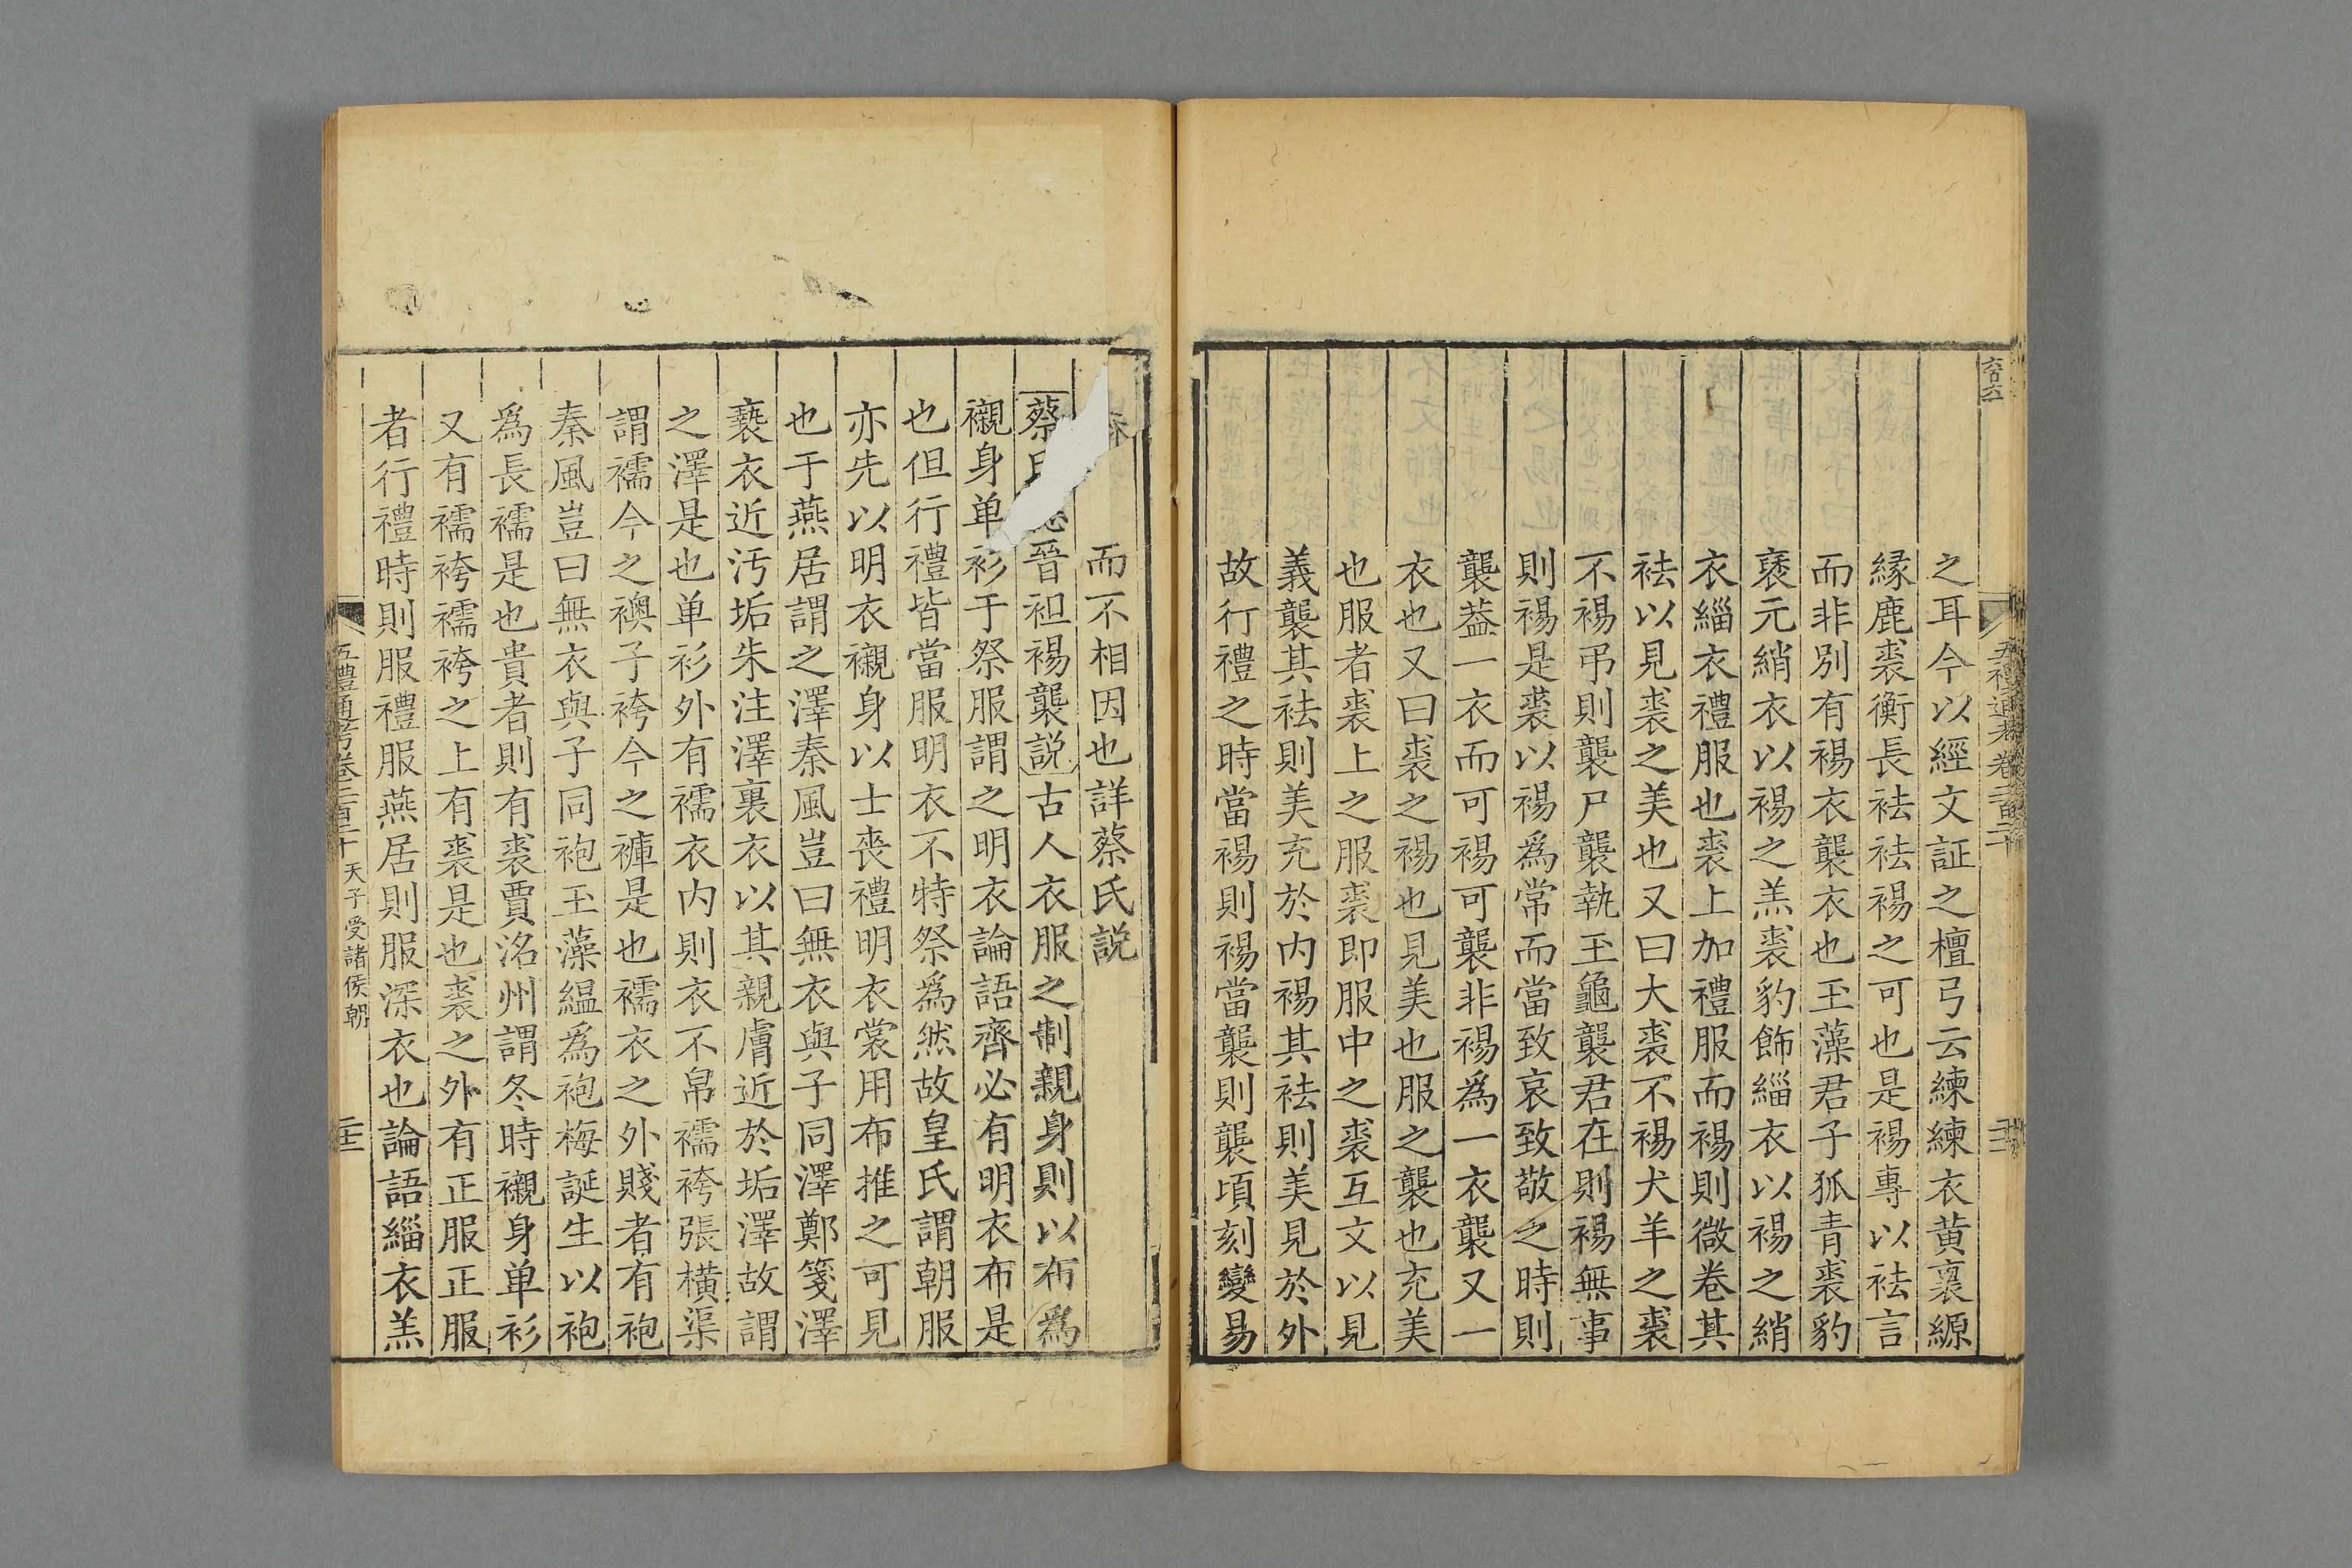 之耳今以經文証之檀弓云練練衣黄裏縓
縁鹿裘衡長袪袪裼之可也是裼專以袪言
而非別有裼衣襲衣也玉藻君子狐青裘豹
褎元綃衣以裼之羔裘豹飾緇衣以裼之綃
衣緇衣禮服也裘上加禮服而裼則微卷其
袪以見裘之美也又曰大裘不裼犬羊之裘
不裼弔則襲尸襲執玉龜襲君在則裼無事
則裼是裘以裼爲常而當致哀致敬之時則
襲葢一衣而可裼可襲非裼爲一衣襲又一
衣也又曰裘之裼也見美也服之襲也充美
也服者裘上之服裘即服中之裘互文以見
義襲其袪則美充於内裼其袪則美見於外
故行禮之時當裼則裼當襲則襲頃刻變易
而不相因也詳蔡氏説
蔡晉袒裼襲説古人衣服之制親身則以布爲
襯身单衫于祭服謂之明衣論語齊必有明衣布是
也但行禮皆當服明衣不特祭爲然故皇氏謂朝服
亦先以明衣襯身以士喪禮明衣裳用布推之可見
也于燕居謂之澤秦風豈曰無衣與子同澤鄭箋澤
褻衣近汚垢朱注澤裏衣以其親膚近於垢澤故謂
之澤是也单衫外有襦衣内則衣不帛襦袴張橫渠
謂襦今之襖子袴今之褲是也襦衣之外賤者有袍
秦風豈曰無衣與子同袍玉藻緼爲袍梅誕生以袍
爲長襦是也貴者則有裘賈洺州謂冬時襯身单衫
又有襦袴襦袴之上有裘是也裘之外有正服正服
者行禮時則服禮服燕居則服深衣也論語緇衣羔
五禮通考卷二百二十 天子受諸侯朝